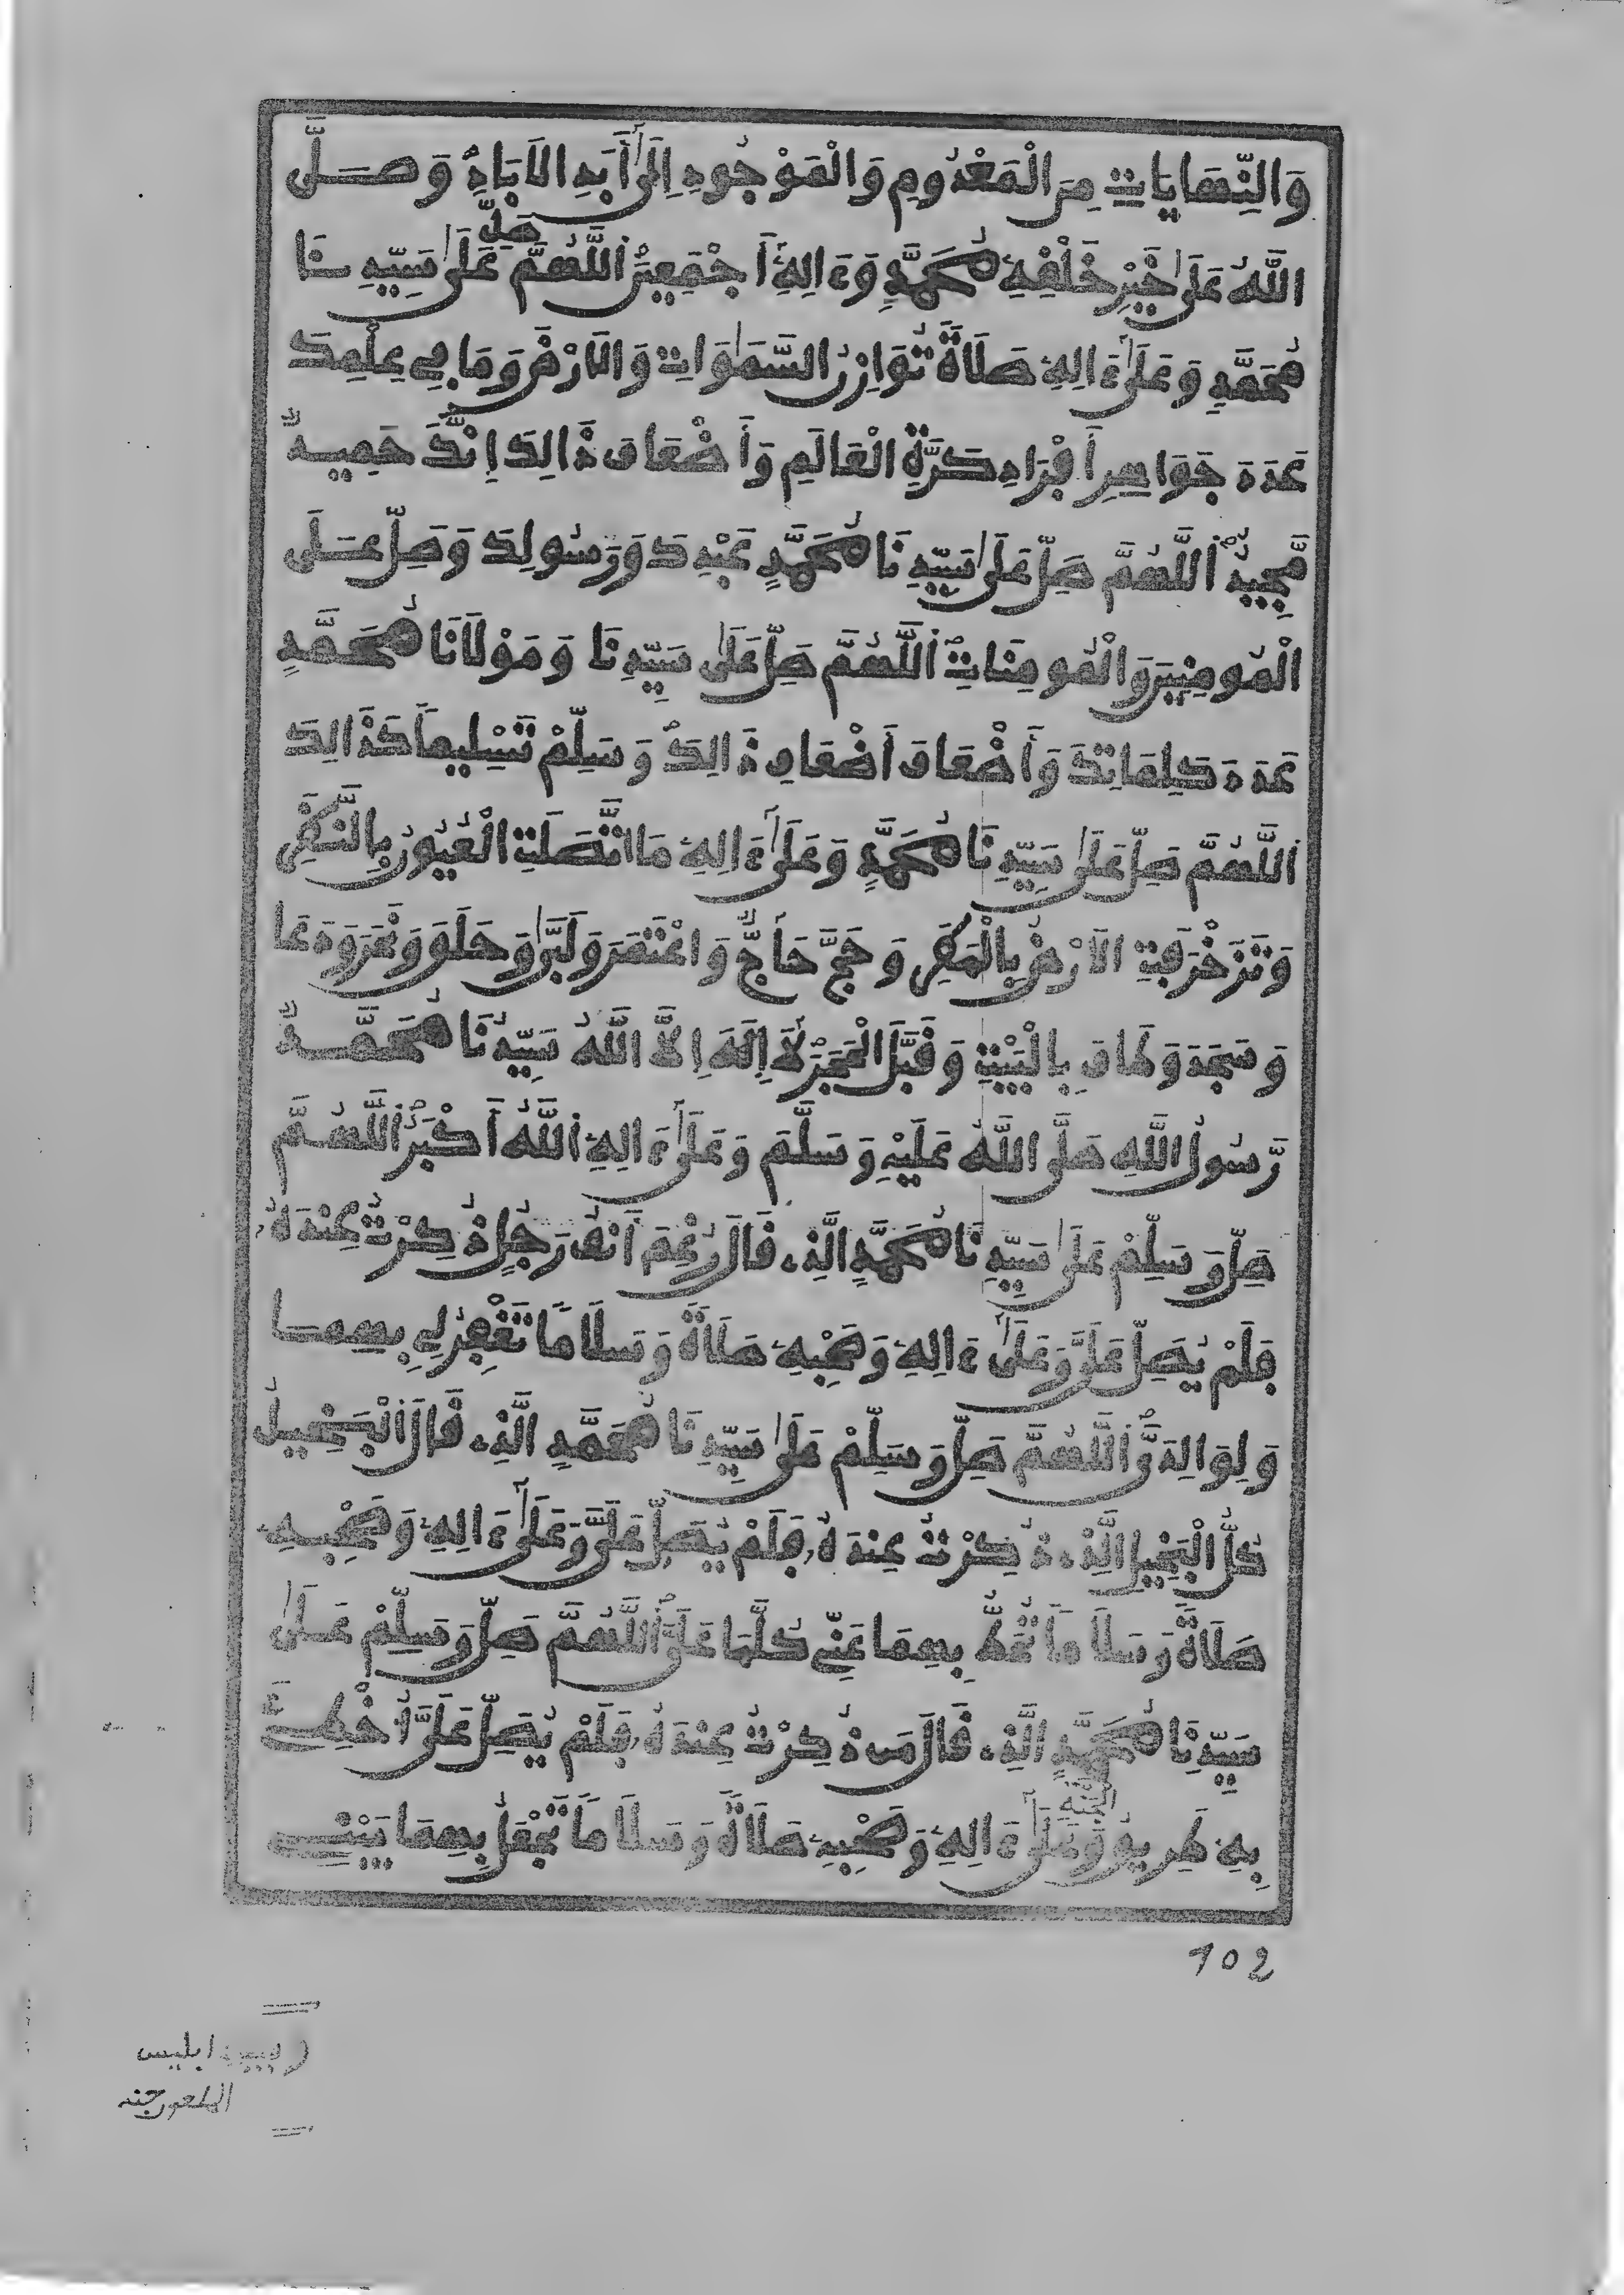 وَالنِّهَايَاتِ مِنَ الْمَعْدُومِ وَالْمَوْجُودِ إِلَىٰ أَبَدِ الْآبَادِ وَصَلَّى
اللَّهُ عَلَىٰ خَيْرِ خَلْقِهِ مُحَمَّدٍ وَءَالِهِ أَجْمَعِينَ اللَّهُمَّ صَلِّ عَلَىٰ سَيِّدِنَا
مُحَمَّدٍ وَعَلَىٰ ءَالِهِ صَلَاةً تُوَازِنُ السَّمَٰوَاتِ وَالْأَرْضَ وَمَا فِي عِلْمِكَ
عَدَدَ جَوَاهِرِ أَفْرَادِ كُرَّةِ الْعَالَمِ وَأَضْعَافَ ذَالِكَ إِنَّكَ حَمِيدٌ
مَّجِيدٌ اللَّهُمَّ صَلِّ عَلَىٰ سَيِّدِنَا مُحَمَّدٍ عَبْدِكَ وَرَسُولِكَ وَصَلِّ عَلَى
الْمُومِنِينَ وَالْمُومِنَاتِ اللَّهُمَّ صَلِّ عَلَىٰ سَيِّدِنَا وَمَوْلَانَا مُحَمَّدٍ
عَدَدَ كَلِمَاتِكَ وَأَضْعَافَ أَضْعَافِ ذَالِكَ وَسَلِّمْ تَسْلِيماً كَذَالِكَ
اللَّهُمَّ صَلِّ عَلَىٰ سَيِّدِنَا مُحَمَّدٍ وَعَلَىٰ ءَالِهِ مَا اتَّصَلَتِ الْعُيُونُ بِالنَّظَرِ
وَتَزَخْرَفَتِ الْأَرْضُ بِالْمَطَرِ وَحَجَّ حَاجٌّ وَاعْتَمَرَ وَلَبَّىٰ وَحَلَقَ وَنَحَرَ وَدَعَا
وَسَجَدَ وَطَافَ بِالْبَيْتِ وَقَبَّلَ الْحَجَرَ لَا إِلَٰهَ إِلَّا اللَّهُ سَيِّدُنَا مُحَمَّدٌ
رَّسُولُ اللَّهِ صَلَّى اللَّهُ عَلَيْهِ وَسَلَّمَ وَعَلَىٰ ءَالِهِ اللَّهُ أَكْبَرُ اللَّهُمَّ
صَلِّ وَسَلِّمْ عَلَىٰ سَيِّدِنَا مُحَمَّدٍ الَّذِي قَالَ رَغِمَ أَنْفُ رَجُلٍ ذُكِرْتُ عِندَهُ
فَلَمْ يُصَلِّ عَلَيَّ وَعَلَىٰ ءَالِهِ وَصَحْبِهِ صَلَاةً وَسَلَاماً تَغْفِرُ لِي بِهِمَا
وَلِوَالِدَيَّ اللَّهُمَّ صَلِّ وَسَلِّمْ عَلَىٰ سَيِّدِنَا مُحَمَّدٍ الَّذِي قَالَ الْبَخِيلُ
كُلُّ الْبَخِيلِ الَّذِي ذُكِرْتُ عِندَهُ فَلَمْ يُصَلِّ عَلَيَّ وَعَلَىٰ ءَالِهِ وَصَحْبِهِ
صَلَاةً وَسَلَاماً تُحَطُّ بِهِمَا عَنِّي كُلَّمَا عَلَيَّ اللَّهُمَّ صَلِّ وَسَلِّمْ عَلَىٰ
سَيِّدِنَا مُحَمَّدٍ الَّذِي قَالَ مَن ذُكِرْتُ عِندَهُ فَلَمْ يُصَلِّ عَلَيَّ أُخْطِئَ
بِهِ طَرِيقُ الْجَنَّةِ وَعَلَىٰ ءَالِهِ وَصَحْبِهِ صَلَاةً وَسَلَاماً تَجْعَلُ بِهِمَا بَيْنِي
102
وبين ابليس
الملعون جنة